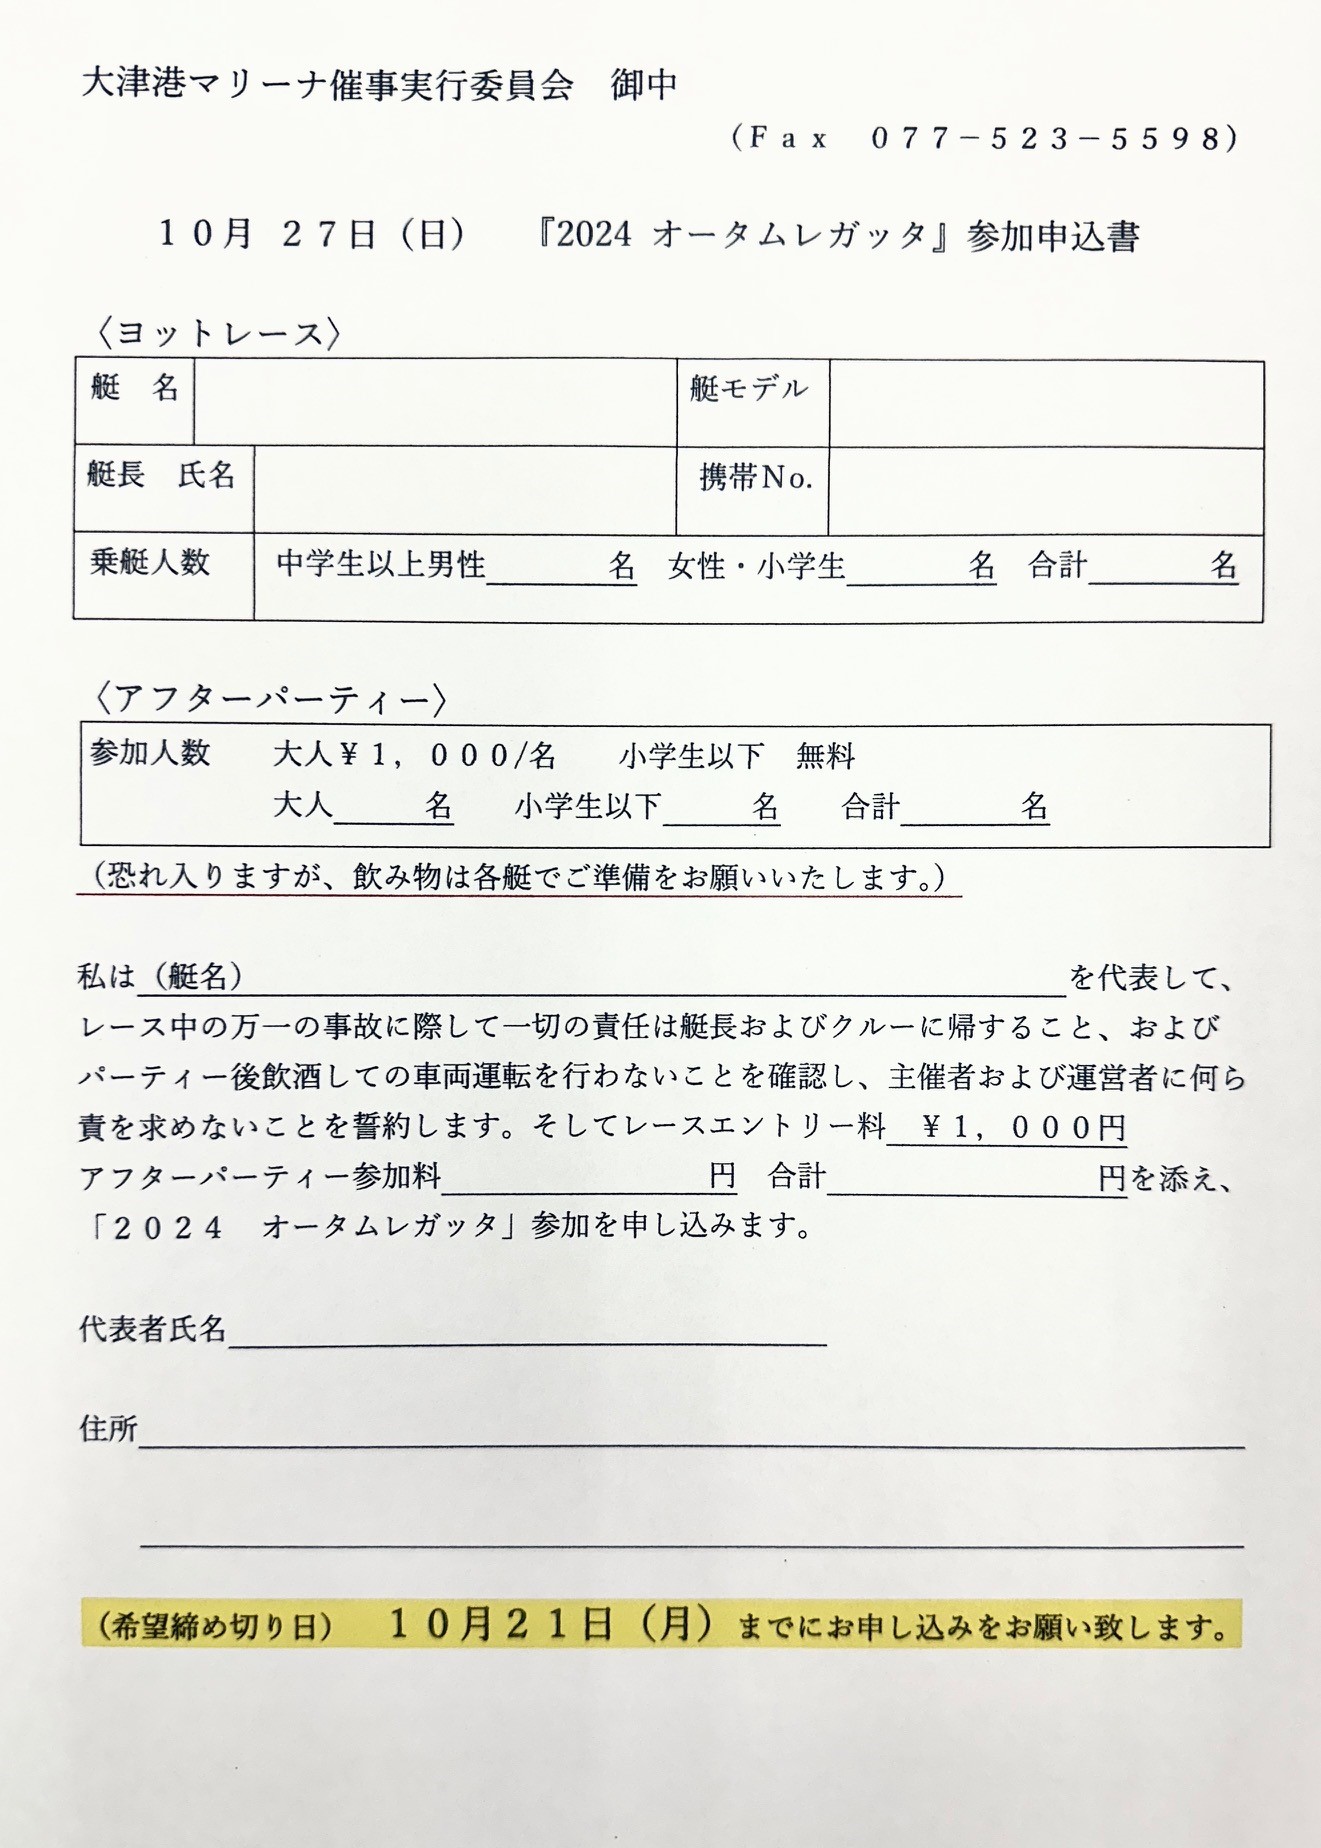 大津港マリーナ催事実行委員会　御中
（Ｆａｘ　０７７－５２３－５５９８）
１０月 ２７日（日）　『2024 オータムレガッタ』参加申込書
〈ヨットレース〉
艇　名　艇モデル
艇長　氏名　携帯No.
乗艇人数　中学生以上男性＿＿＿＿名　女性・小学生＿＿＿＿名　合計＿＿＿＿名
〈アフターパーティー〉
参加人数　大人￥１，０００/名　小学生以下　無料
大人＿＿＿名　小学生以下＿＿＿名　合計＿＿＿＿名
（恐れ入りますが、飲み物は各艇でご準備をお願いいたします。）
私は（艇名）＿＿＿＿＿＿＿＿＿＿を代表して、
レース中の万一の事故に際して一切の責任は艇長およびクルーに帰すること、および
パーティー後飲酒しての車両運転を行わないことを確認し、主催者および運営者に何ら
責を求めないことを誓約します。そしてレースエントリー料　￥１，０００円
アフターパーティー参加料＿＿＿＿＿＿円　合計＿＿＿＿＿＿円を添え、
「２０２４　オータムレガッタ」参加を申し込みます。
代表者氏名
住所
（希望締め切り日）　１０月２１日（月）までにお申し込みをお願い致します。